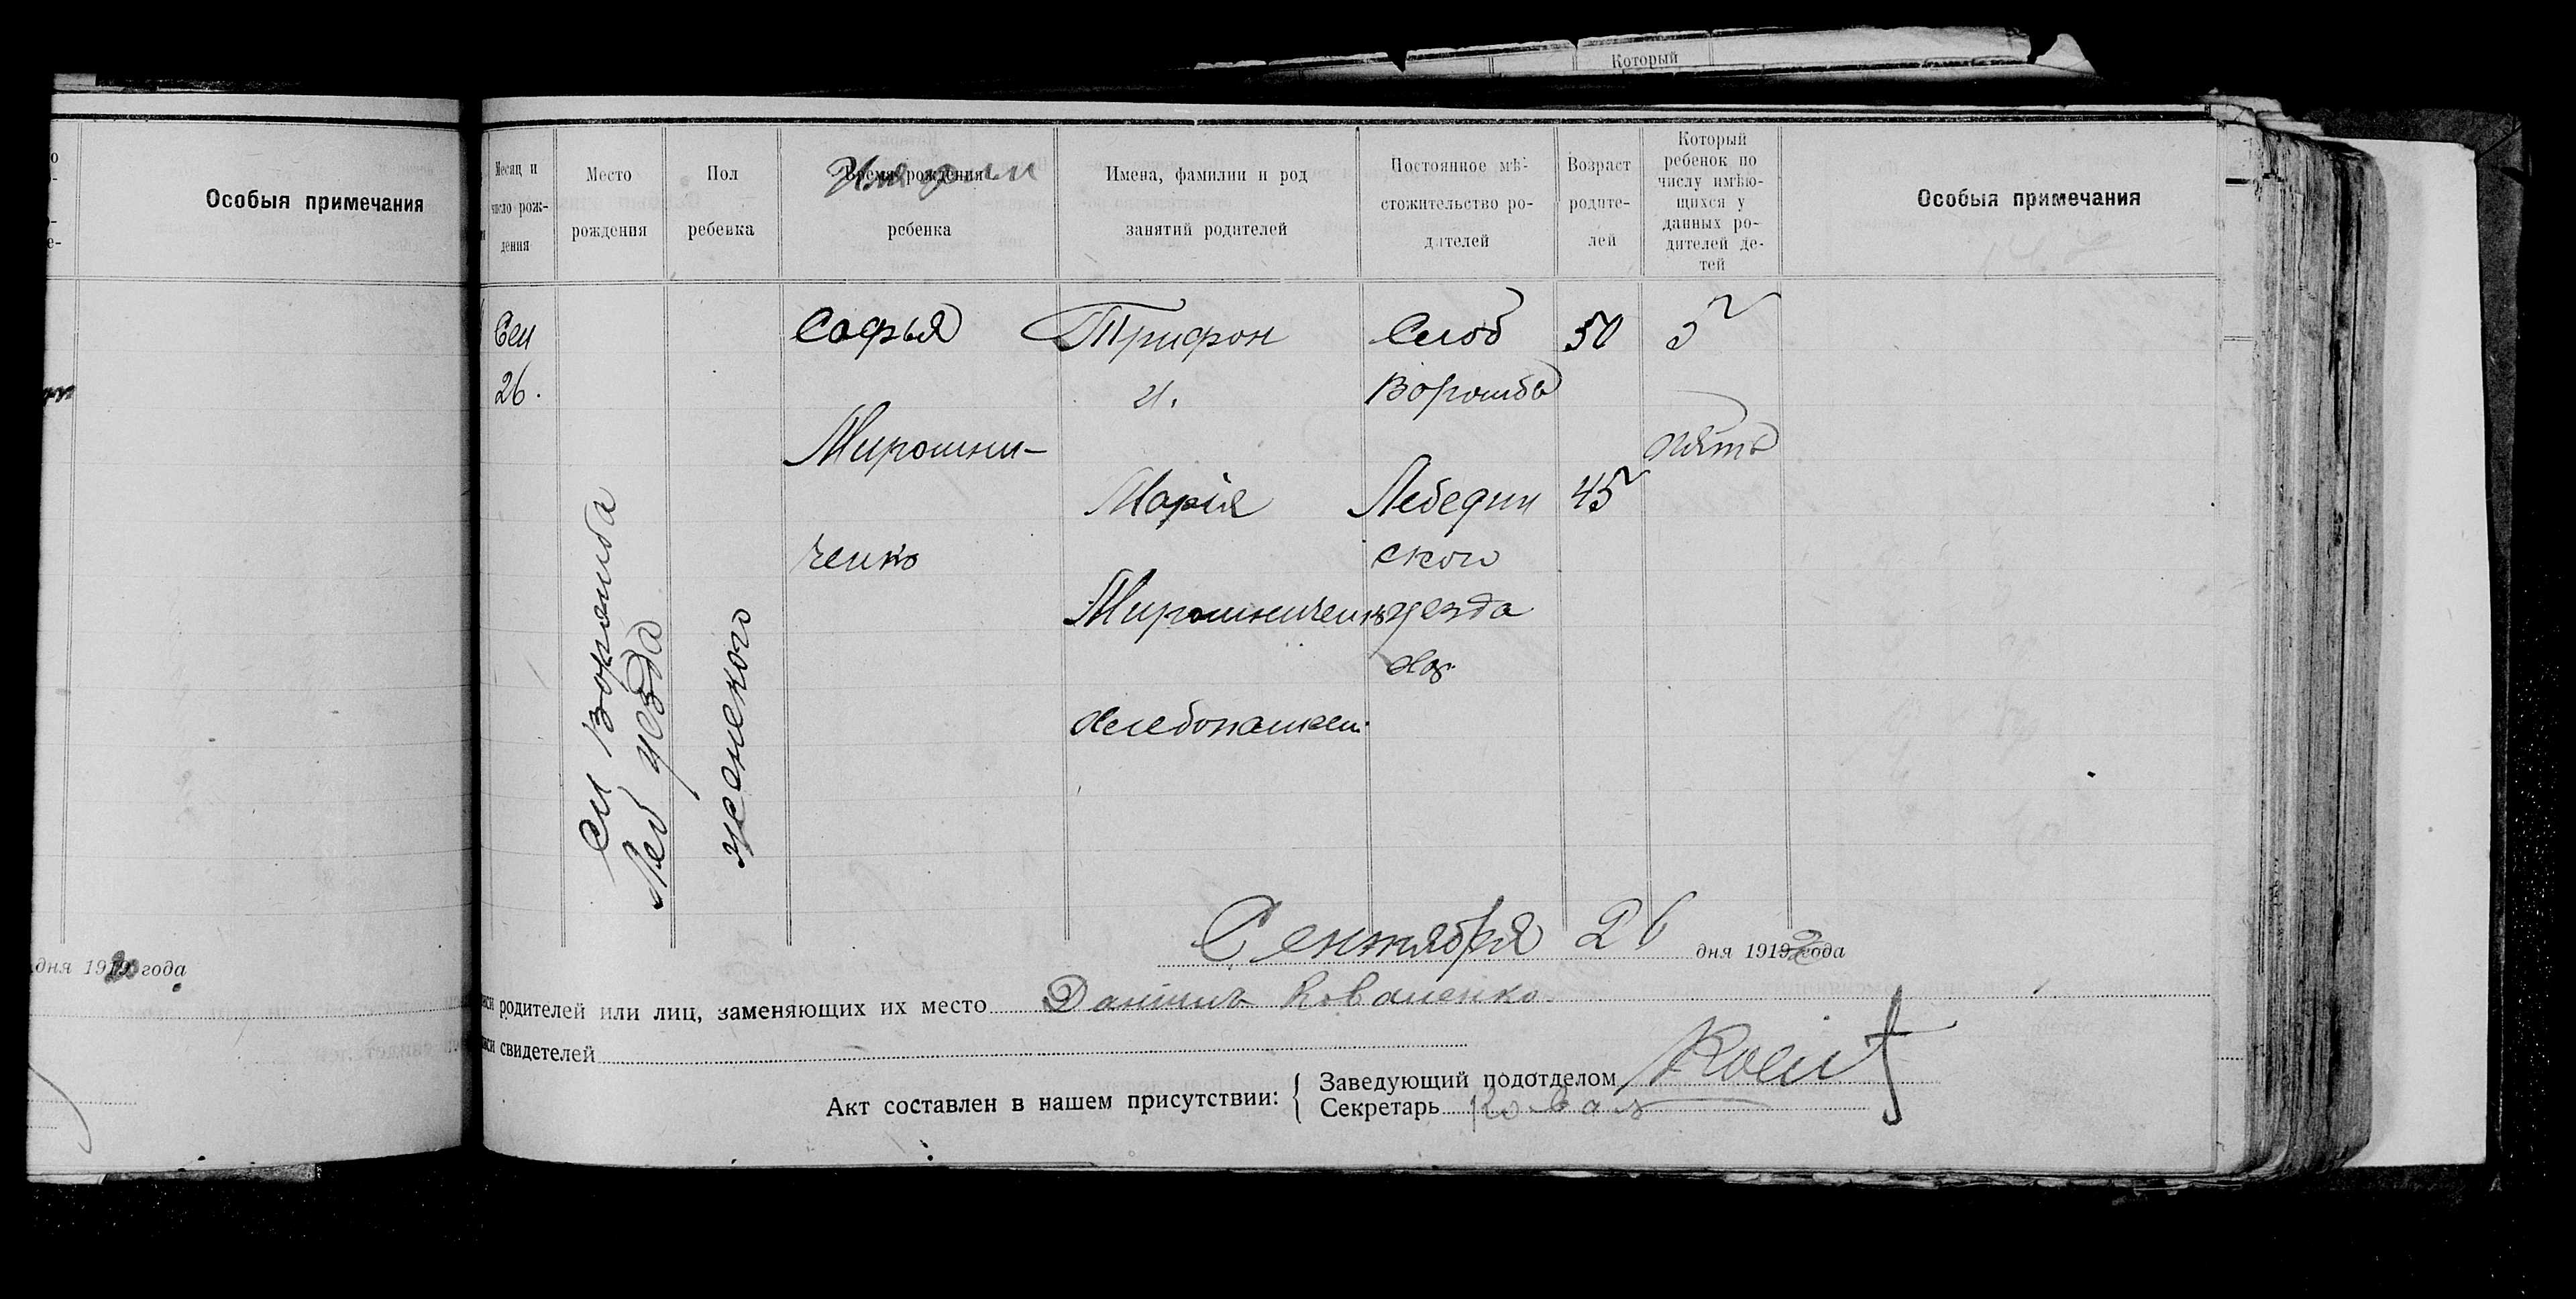 Который
Особыя примечания
дня 1919 года
Месяц и
число рож-
дения
Место
рождения
Пол
ребенка
Время рождения
ребенка
Имя
Имена, фамилии и род
занятий родителей
Постоянное мѣ-
стожительство ро-
дителей
Возраст
родите-
лей
Который
ребенок по
числу имѣю-
щихся у
данных ро-
дителей де-
тей
Особыя примечания
Сен
26.
Сл Ворожба
Леб уезда
женского
Софья
Мирошни-
ченко
Трифон
и.
Мария
Мирошничен
хлебопашец
Слоб
Ворожба
Лебедин
ского
уезда
Хар.
50
45
5
пять
Сентября 26 дня 1919 года
родителей или лиц, заменяющих их место Даниил Коваленко
свидетелей
Акт составлен в нашем присутствии:
Заведующий подотделом
Секретарь